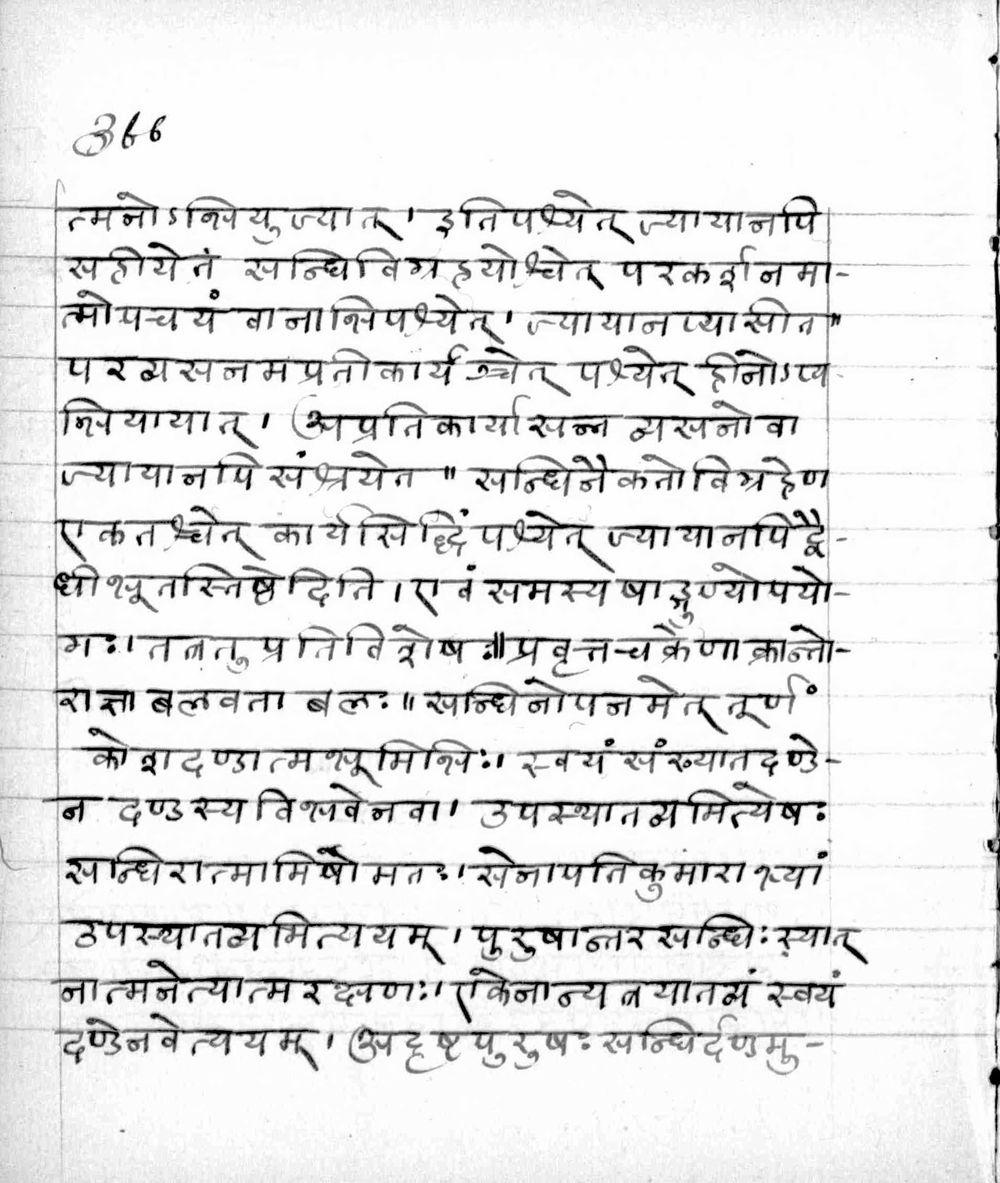 366
त्मनोऽभियुज्यात्। इतिपश्येत् ज्यायानपि
सहीयेतं सन्धिविग्रहयोश्चेत् परकर्शनमा-
त्मोपचयं वानाभिपश्येत्। ज्यायानप्यासीत॥
परव्यसनमप्रतीकार्यञ्चेत् पश्येत् हीनोऽप्य-
भियायात्। अप्रतिकार्यासन्नव्यसनोवा
ज्यायानपि संश्रयेत॥ सन्धिनैकतोविग्रहेण
एकतश्चेत् कार्यसिद्धिंपश्येत् ज्यायानपिद्वै-
धीभूतस्तिष्ठेदिति। एवंसमस्यषाड्गुण्योपयो-
गः। तत्रतुप्रतिविशेषः॥ प्रवृत्तचक्रेणाक्रान्तो-
राज्ञाबलवताबलः॥ सन्धिनोपनमेत् तूर्णं
कोशदण्डात्मभूमिभिः। स्वयंसंख्यातदण्डे-
न दण्डस्यविभवेनवा। उपस्थातव्यमित्येषः
सन्धिरात्मामिषोमतः। सेनापतिकुमाराभ्यां
उपस्थातव्यमित्ययम्। पुरुषान्तरसन्धिः स्यात्
नात्मनेत्यात्मरक्षणः। एकेनान्यत्रयातव्यं स्वयं
दण्डेनवेत्ययम्। अदृष्टपुरुषः सन्धिर्दण्डमु-